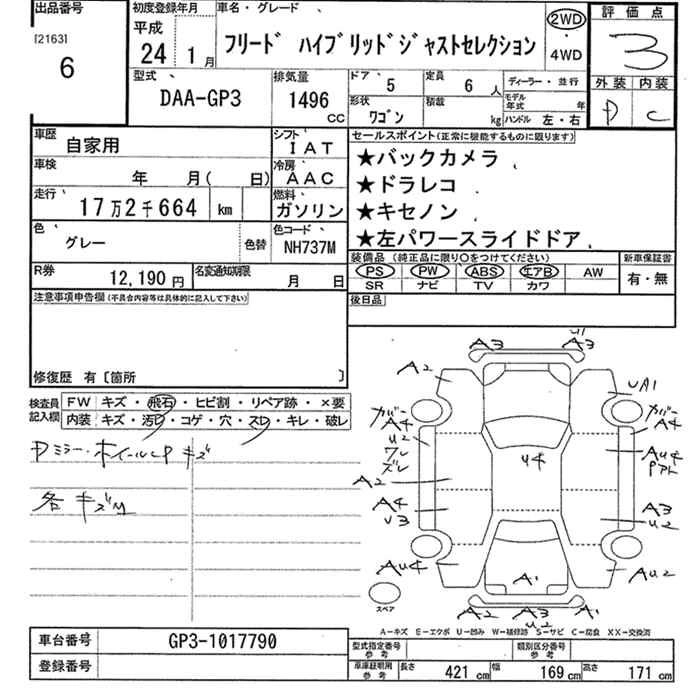 出品番号
[2163]
6
初度登録年月
平成
24 1月
車名・グレード
フリード ハイブリッドジャストセレクション
2WD
・
4WD
評価点
3
外装 内装
D C
型式
DAA-GP3
排気量
1496
CC
ドア 5
定員 6 人
形状
ワゴン
積載 kg
ディーラー・並行
モデル年式 年
ハンドル 左・右
車歴 自家用
シフト IAT
車検 年 月( 日)
冷房 AAC
走行 17万2千664 km
燃料 ガソリン
色 グレー
色替
色コード NH737M
R券 12,190円
名変通知期限 月 日
セールスポイント(正常に機能するものに限ります)
★バックカメラ
★ドラレコ
★キセノン
★左パワースライドドア
装備品 (純正品に限り○をつけてください)
PS PW ABS エアB AW
SR ナビ TV カワ
新車保証書
有・無
後日品
注意事項申告欄(不具合内容等は具体的に記入して下さい)
修復歴 有〔箇所 〕
検査員記入欄
FW キズ・飛石・ヒビ割・リペア跡・×要
内装 キズ・汚レ・コゲ・穴・スレ・キレ・破レ
Dミラー・ホイールCP キズ
各 キズM
U1
A3 A3
A2
UA1
カバー
A4
カバー
A4
U2
ワレ
ズレ
U4
AU4
Pアト
A2
A4
U3
A3
U2
AU4
AU2
A1
スペア
A2 A3 A1
U2
A-キズ E-エクボ U-凹み W-補修跡 S-サビ C-腐食 XX-交換済
車台番号 GP3-1017790
登録番号
型式指定番号
参考
類別区分番号
参考
車庫証明用
参考
長さ 421 cm 幅 169 cm 高さ 171 cm